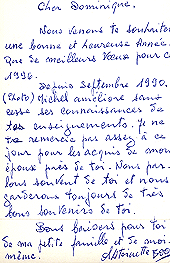 Cher Dominique.
Nous venons te souhaiter
une bonne et heureuse Année.
Que de meilleurs Vœux pour
1996.
Depuis Septembre 1990.
(Photo) Michel améliore sans
cesse ses connaissances de
tes enseignements. Je ne
te remercie pas assez à ce
jour pour les acquis de mon
époux près de toi. Nous par
lons souvent de toi et nous
garderons toujours de très
bons souvenirs de toi.
Bons baisers pour toi
de ma petite famille et de moi-
même. Antoinette